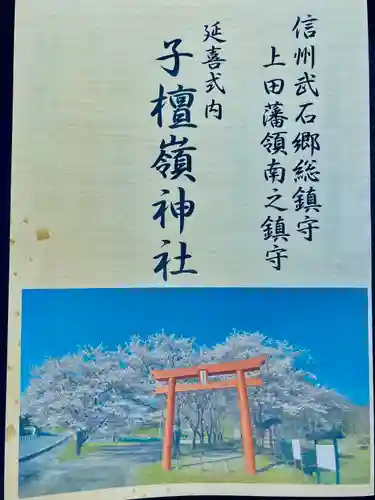 信州武石郷総鎮守
上田藩領南之鎮守
延喜式内
子檀嶺神社